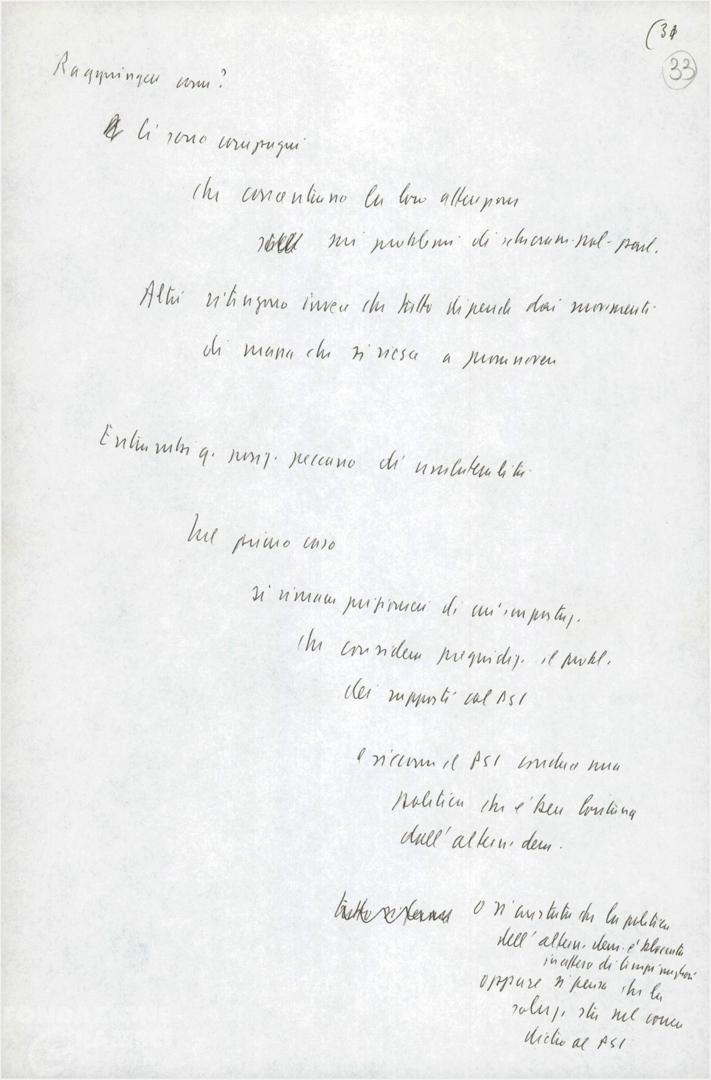 (31
33
Raggiungere come?
Ci sono compagni
che concentrano la loro attenzione
sui problemi di schieram. pol-parl.
Altri ritengono invece che tutto dipende dai movimenti
di massa che si riesca a promuovere
Entrambe q. posiz. peccano di unilateralità
Nel primo caso
si rimane prigionieri di un'impostaz.
che considera pregiudiz. il probl.
dei rapporti col PSI
e siccome il PSI conduce una
politica che è ben lontana
dall'altern. dem.
tutto si ferma O si constata che la politica
dell'altern. dem. è bloccata
in attesa di tempi migliori
oppure si pensa che la
soluz. sta nel correr
dietro al PSI
FONDAZIONE
GRAMSCI